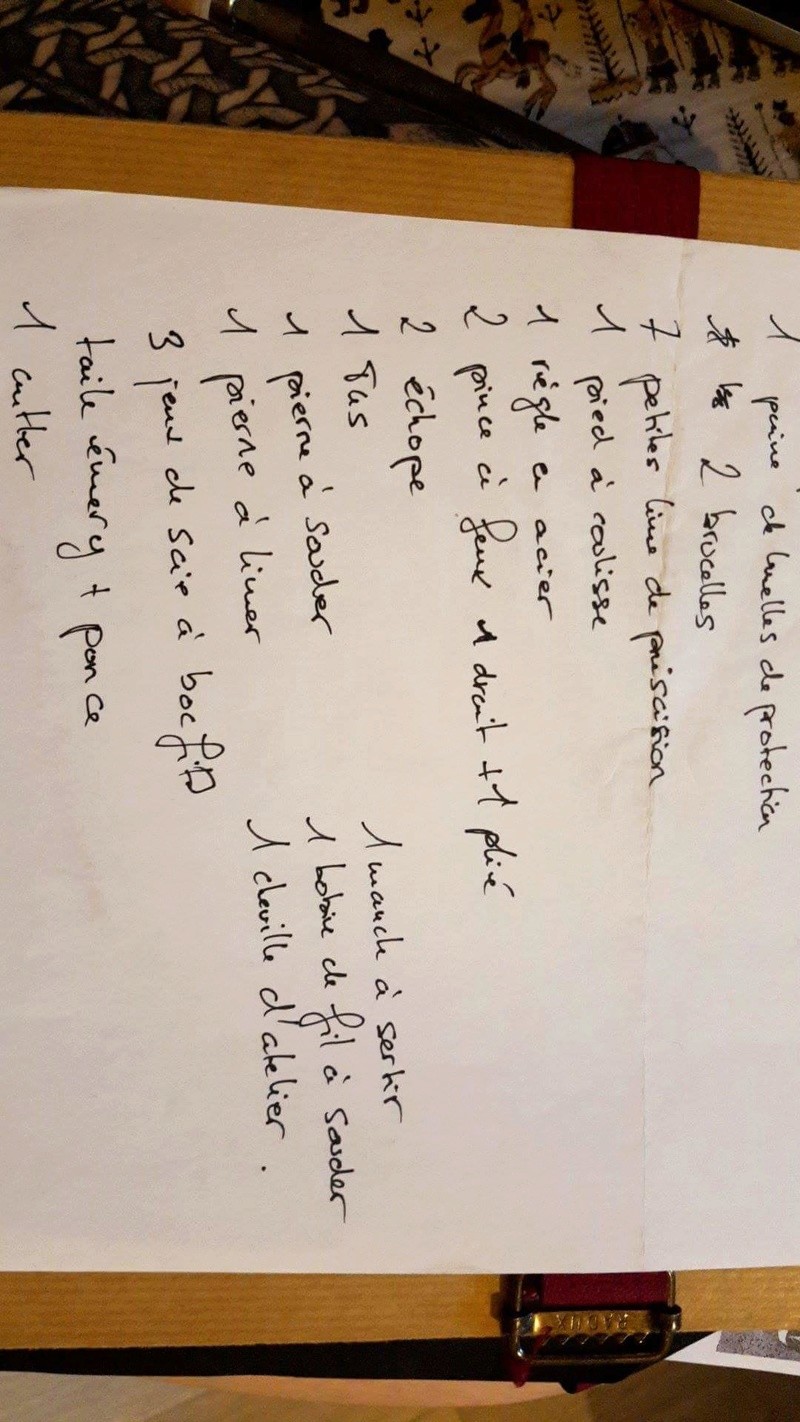 1 paire de lunelles de protection
2 brucelles
7 petites lime de préscision
1 pied à coulisse
1 règle en acier
2 pince à feux 1 droit + 1 plié
2 échope
1 Tas
1 pierre à souder
1 pierre à limer
3 jeux de scie à bocfil
toile émery + ponce
1 cutter
1 manch à sertir
1 bobine de fil à souder
1 cheville d'atelier.
RADUX